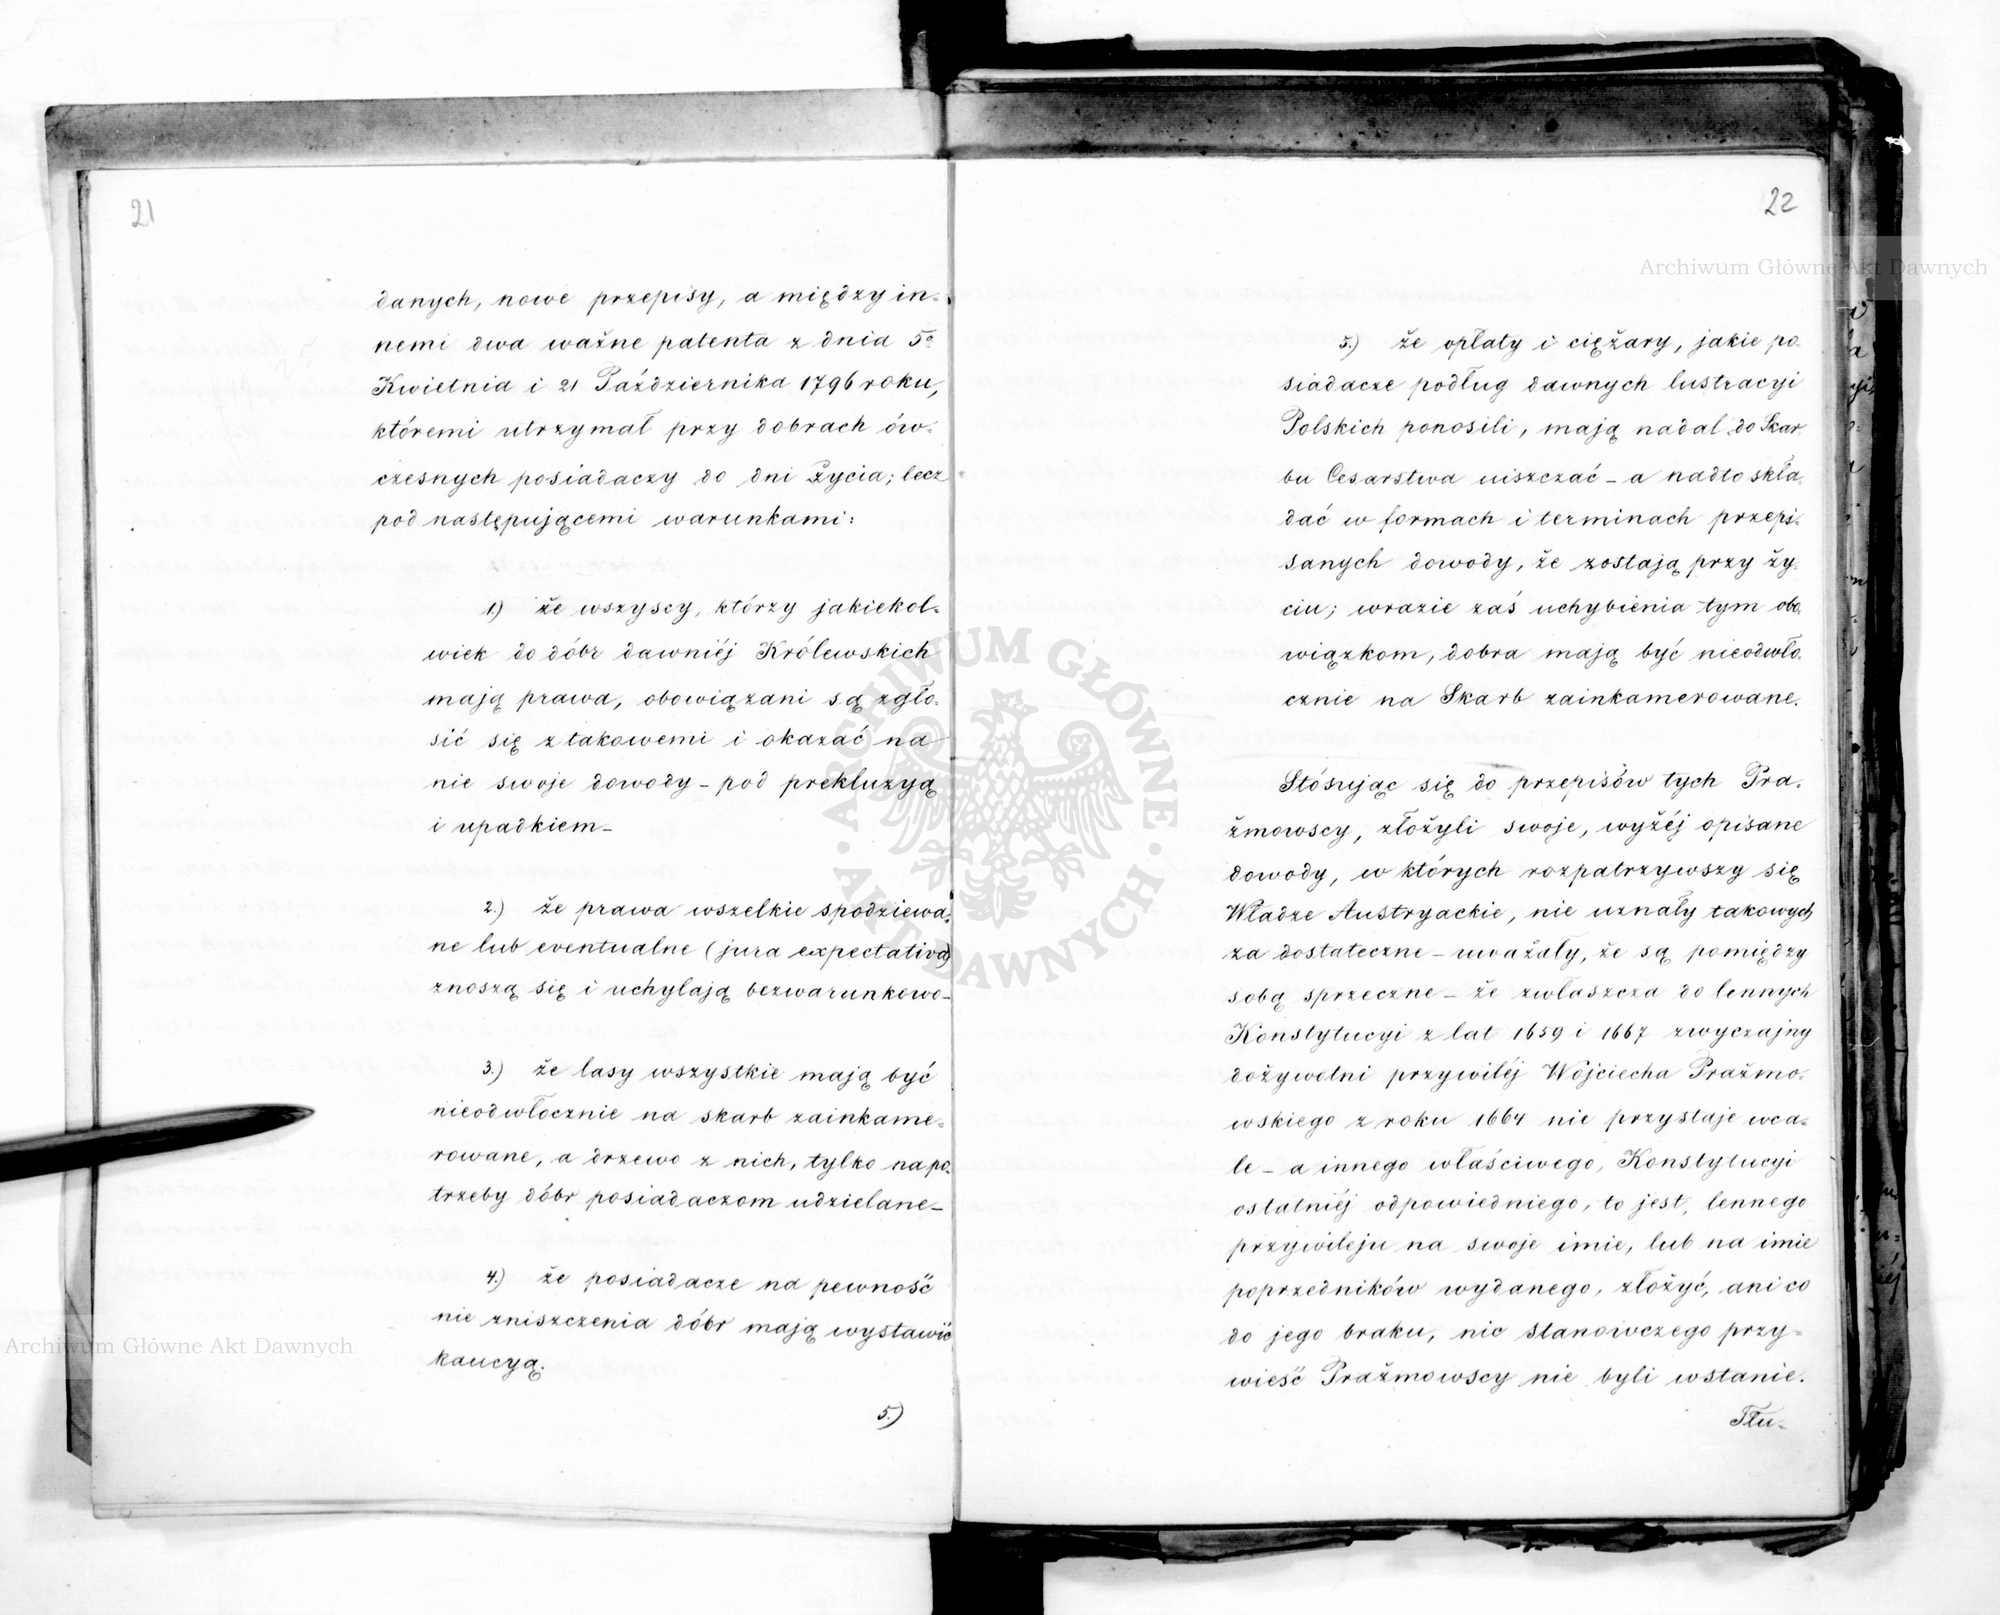 21
danych, nowe przepisy, a między in=
nemi dwa ważne patenta z dnia 5º
Kwietnia i 21 Października 1796 roku,
któremi utrzymał przy dobrach ów=
czesnych posiadaczy do dni życia; lecz
pod następującemi warunkami:
1) że wszyscy, którzy jakiekol=
wiek do dóbr dawniéj Królewskich
mają prawa, obowiązani są zgło=
sić się z takowemi i okazać na
nie swoje dowody – pod prekluzyą
i upadkiem –
2.) że prawa wszelkie spodziewa=
ne lub eventualne (jura expectativa)
znoszą się i uchylają bezwarunkowo –
3.) że lasy wszystkie mają być
nieodwłocznie na skarb zainkame=
rowane, a drzewo z nich, tylko na po=
trzeby dóbr posiadaczom udzielane –
4.) że posiadacze na pewność
nie zniszczenia dóbr mają wystawić
kaucyą.
5.)
22
5.) że opłaty i ciężary, jakie po=
siadacze podług dawnych lustracyi
Polskich ponosili, mają nadal do Skar=
bu Cesarstwa uiszczać – a nadto skła=
dać w formach i terminach przepi=
sanych dowody, że zostają przy ży=
ciu; wrazie zaś uchybienia tym obo=
wiązkom, dobra mają być nieodwło=
cznie na Skarb zainkamerowane.
Stósując się do przepisów tych Pra=
żmowscy, złożyli swoje, wyżéj opisane
dowody, w których rozpatrzywszy się
Władze Austryackie, nie uznały takowych
za dostateczne – uważały, że są pomiędzy
sobą sprzeczne – że zwłaszcza do lennych
Konstytucyi z lat 1659 i 1667 zwyczajny
dożywotni przywiléj Wojciecha Prażmo=
wskiego z roku 1664 nie przystaje wca=
le – a innego właściwego, Konstytucyi
ostatniéj odpowiedniego, to jest, lennego
przywileju na swoje imie, lub na imie
poprzedników wydanego, złożyć, ani co
do jego braku, nic stanowczego przy=
wieść Prażmowscy nie byli wstanie.
Tłu=
Archiwum Główne Akt Dawnych
Archiwum Główne Akt Dawnych
ARCHIWUM GŁÓWNE
AKT DAWNYCH